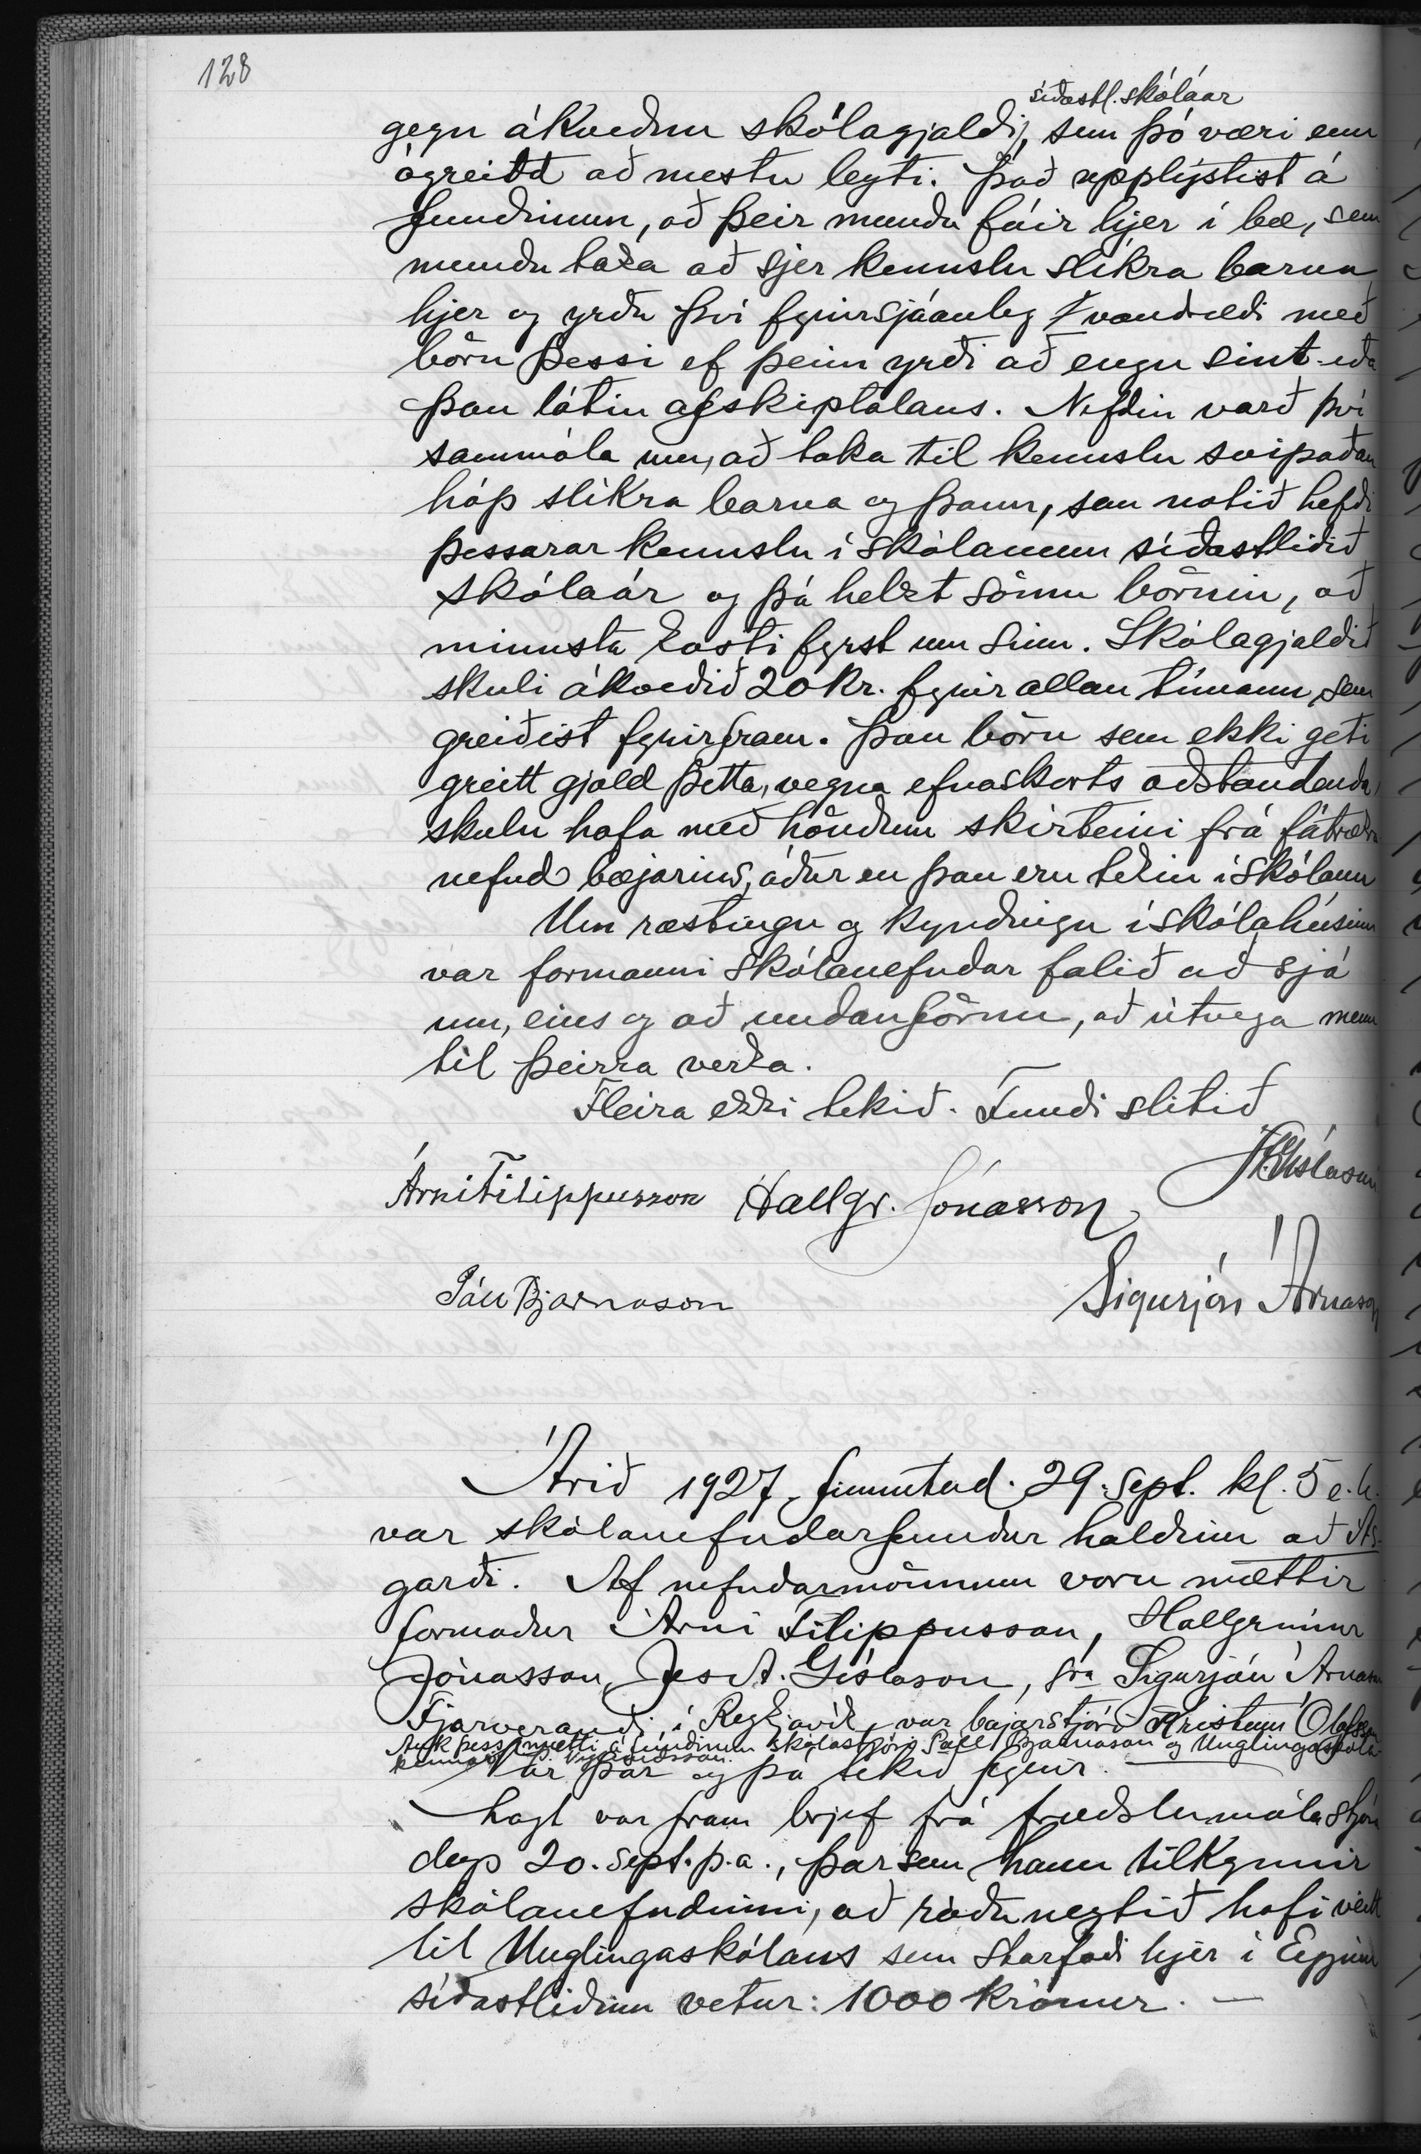 128
síðastl. skólaár
gegn ákveðnu skólagjaldi, sem þó væri enn
ógreitt að mestu leyti. Það upplýstist á
fundinum, að þeir mundu fáir hjer í bæ, sem
mundu taka að sjer kennslu slíkra barna
hjer og yrðu því fyrirsjáanleg vandræði með
börn þessi ef þeim yrði að engu sint eða
þau látin afskiptalaus. Nefndin varð því
sammála um, að taka til kennslu svipaðan
hóp slíkra barna og þann, sem notið hefði
þessarar kennslu í skólanum síðastliðið
skólaár og þá helzt sömu börnin, að
minnsta kosti fyrst um sinn. Skólagjaldið
skuli ákveðið 20 kr. fyrir allan tímann sem
greiðist fyrirfram. Þau börn sem ekki geti
greitt gjald þetta, vegna efnaskorts aðstandenda,
skulu hafa með höndum skírteini frá fátækra
nefnd bæjarins, áður en þau eru tekin í skólann
Um ræstingu og kyndingu í skólahúsinu
var formanni skólanefndar falið að sjá
um, eins og að undanförnu, að útvega menn
til þeirra verka.
Fleira ekki tekið. Fundi slitið
JAGíslason
Árni Filippusson Hallgr. Jónasson
Páll Bjarnason Sigurjón Árnason
Árið 1927, fimmtud. 29. sept. kl. 5 e.h.
var skólanefndarfundur haldinn að Ás-
garði. Af nefndarmönnum voru mættir
formaður Árni Filippusson, Hallgrímur
Jónasson, Jes A. Gíslason, sra Sigurjón Árnason
Fjarverandi, í Reykjavík, var bæjarstjóri Kristinn Ólafsson
Auk þess mætti á fundinum skólastjóri Páll Bjarnason og Unglingaskóla
kennari Þ. Víglundsson.
Var þar og þá tekið fyrir.
Lagt var fram brjef frá fræðslumálastjóra
dags 20. sept. þ.a., þar sem hann tilkynnir
skólanefndinni, að ráðuneytið hafi veitt
til Unglingaskólans sem starfaði hjer í Eyjum
síðastliðinn vetur: 1000 krónur. —